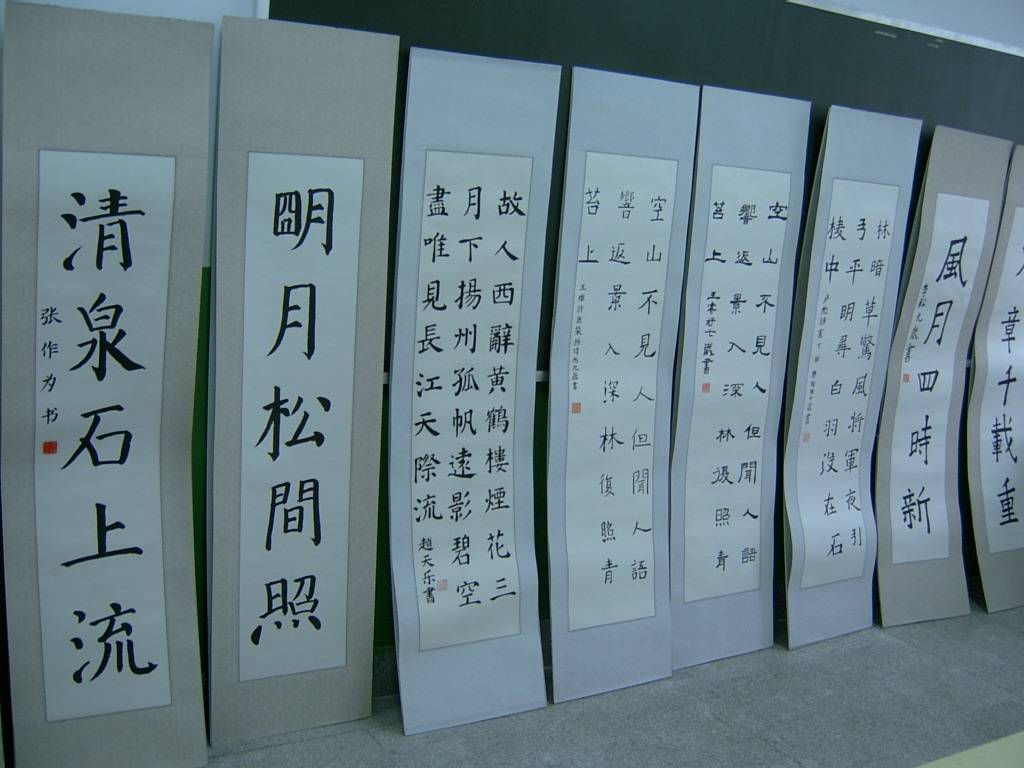 章千載重
風月四時新
九歲書
林暗草驚風將軍夜引
弓平明尋白羽沒在石
棱中
空山不見人但聞人語
響返景入深林復照青
苔上
空山不見人但聞人語
響返景入深林復照青
苔上
故人西辭黃鶴樓煙花三
月下揚州孤帆遠影碧空
盡唯見長江天際流
趙天乐書
明月松間照
清泉石上流
张作为书